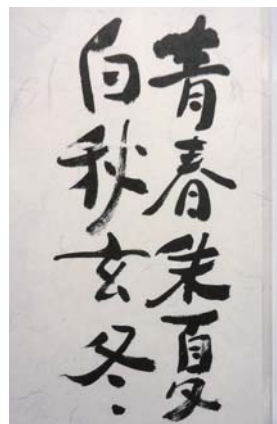 青春朱夏
白秋玄冬